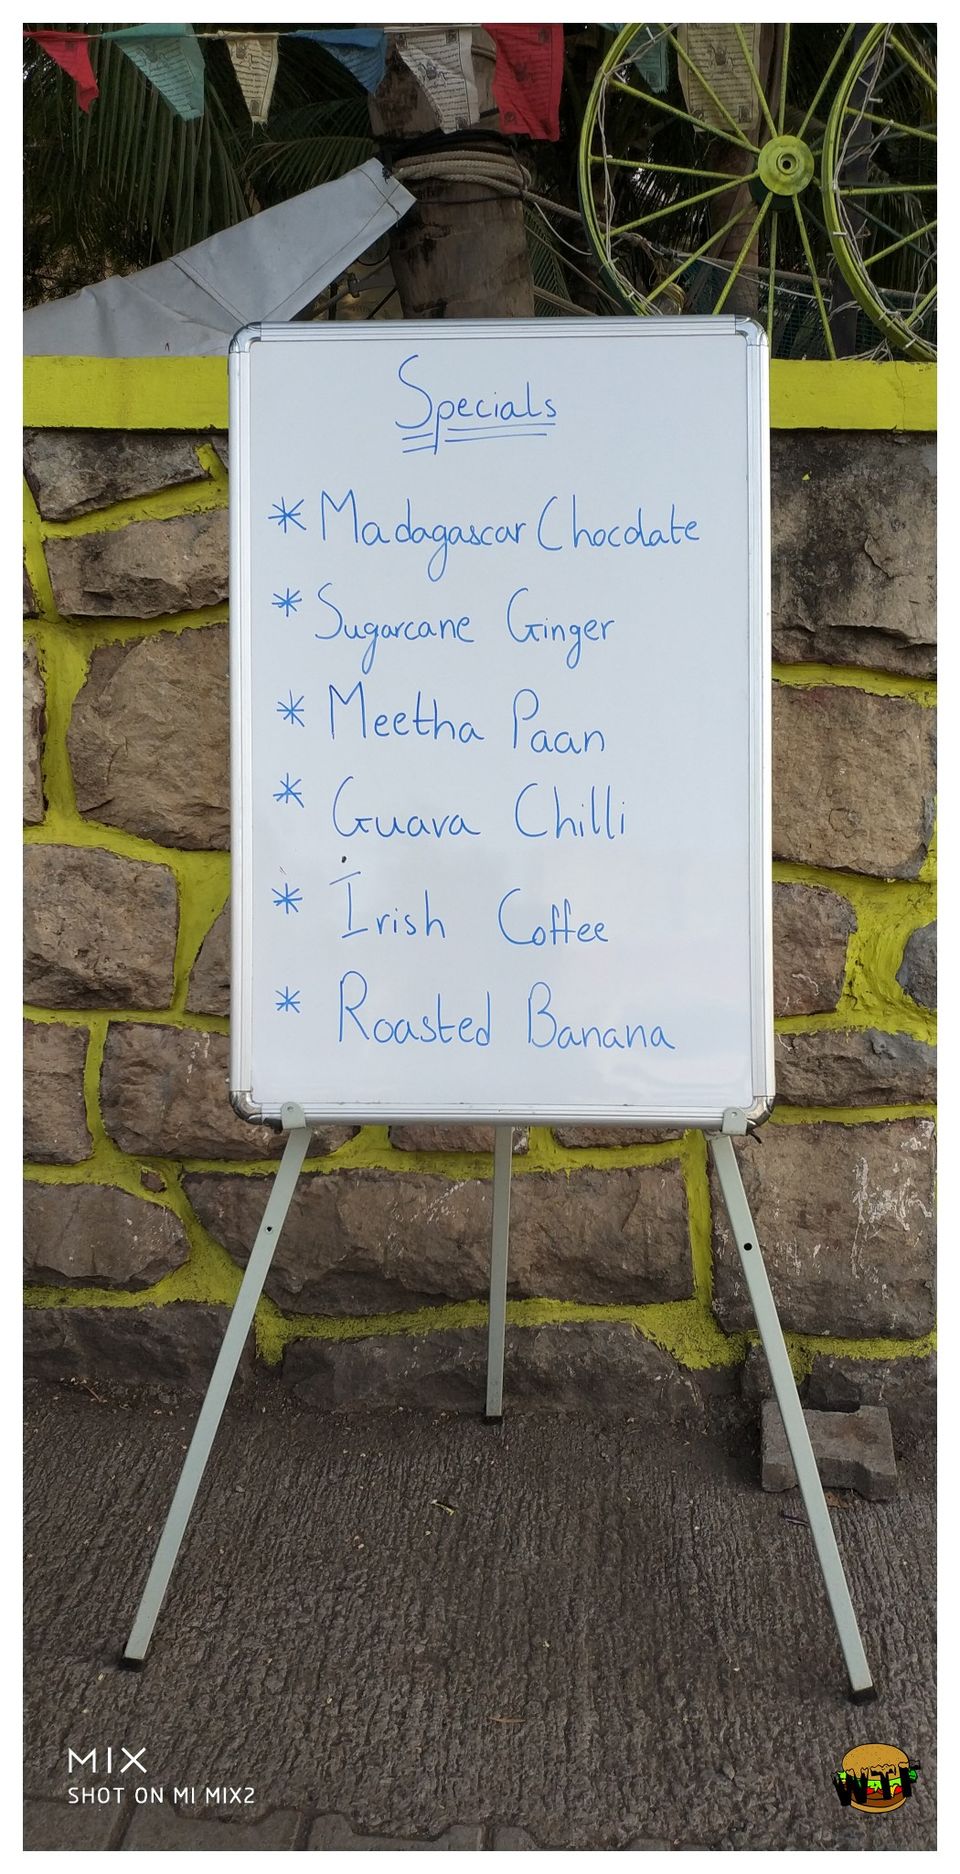 Specials
* Madagascar Chocolate
* Sugarcane Ginger
* Meetha Paan
* Guava Chilli
* Irish Coffee
* Roasted Banana
MIX
SHOT ON MI MIX2
WTF